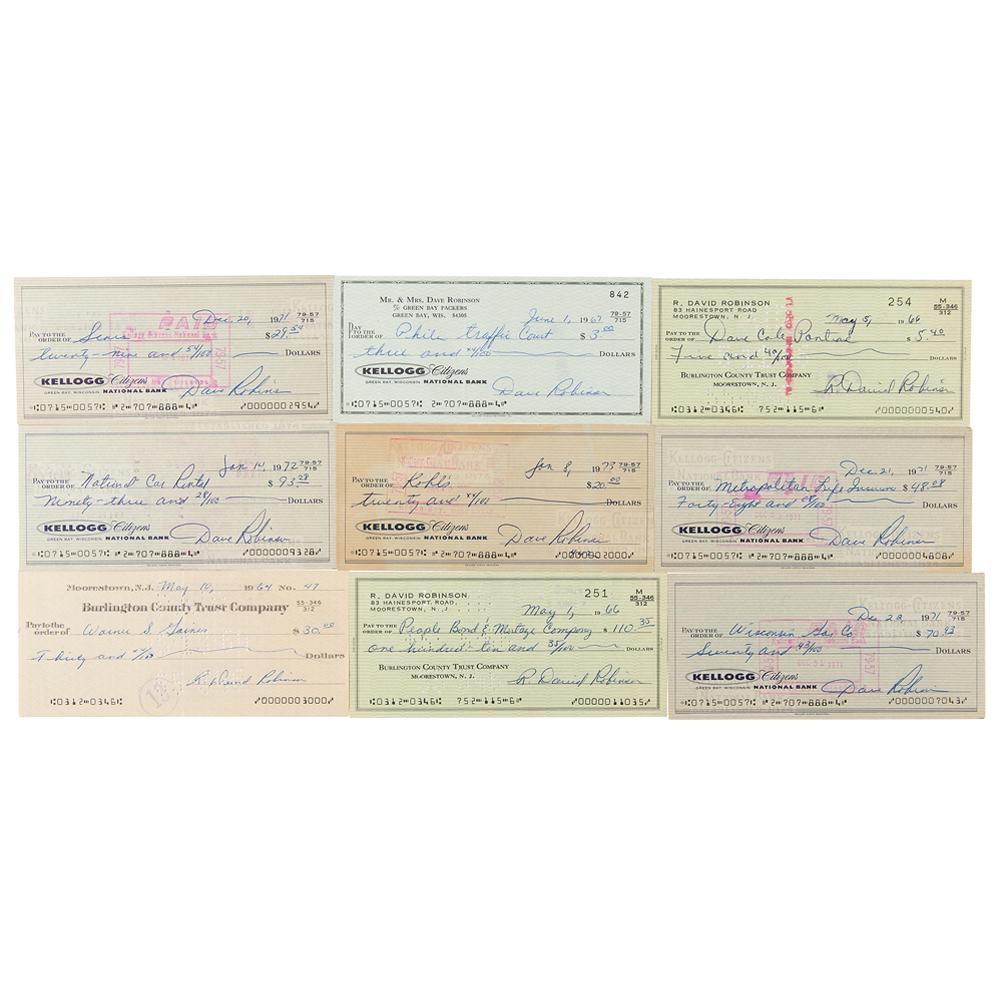 Dec 20, 1971 79-57
715
PAY TO THE
ORDER OF Sears $ 29.54
twenty-nine and 54/100 DOLLARS
KELLOGG Citizens
GREEN BAY, WISCONSIN NATIONAL BANK
Dave Robinson
⑆0715⑈0057⑆ 2⑈707⑈888⑈4⑈ ⑇0000002954⑇
842
MR. & MRS. DAVE ROBINSON
% GREEN BAY PACKERS
GREEN BAY, WIS. 54305
June 1, 1967 79-57
715
PAY
TO THE
ORDER OF Phila Traffic Court $ 3.00
three and 00/100 DOLLARS
KELLOGG Citizens
GREEN BAY, WISCONSIN NATIONAL BANK
Dave Robinson
⑆0715⑈0057⑆ 2⑈707⑈888⑈4⑈
R. DAVID ROBINSON
83 HAINESPORT ROAD
MOORESTOWN, N. J.
254 M
55-346
312
May 5, 1966
PAY TO THE
ORDER OF Dave Cole Pontiac $ 5.40
Five and 40/100 DOLLARS
BURLINGTON COUNTY TRUST COMPANY
MOORESTOWN, N. J.
R. David Robinson
⑆0312⑈0346⑆ 752⑈115⑈6⑈ ⑇0000000540⑇
Jan 14, 1972 79-57
715
PAY TO THE
ORDER OF National Car Rental $ 93.28
Ninety-three and 28/100 DOLLARS
KELLOGG Citizens
GREEN BAY, WISCONSIN NATIONAL BANK
Dave Robinson
⑆0715⑈0057⑆ 2⑈707⑈888⑈4⑈ ⑇0000009328⑇
Jan 8, 1973 79-57
715
PAY TO THE
ORDER OF Kohl's $ 20.00
twenty and DOLLARS
KELLOGG Citizens
GREEN BAY, WISCONSIN NATIONAL BANK
Dave Robinson
⑆0715⑈0057⑆ 2⑈707⑈888⑈4⑈ ⑇0000002000⑇
Dec 21, 1971 79-57
715
PAY TO THE
ORDER OF Metropolitan Life $ 48.08
Forty-Eight and 08/100 DOLLARS
KELLOGG Citizens
GREEN BAY, WISCONSIN NATIONAL BANK
Dave Robinson
⑆0715⑈0057⑆ 2⑈707⑈888⑈4⑈ ⑇0000004808⑇
Moorestown, N.J. May 10, 1964 No. 47
Burlington County Trust Company 55-346
312
Pay to the
order of S. Gaines $ 30.00
Thirty and Dollars
Robinson
⑆0312⑈0346⑆ ⑇0000003000⑇
R. DAVID ROBINSON
83 HAINESPORT ROAD
MOORESTOWN, N. J.
251 M
55-346
312
May 1, 1966
PAY TO THE
ORDER OF People Bond & Company $ 110.35
one hundred-ten and 35/100 DOLLARS
BURLINGTON COUNTY TRUST COMPANY
MOORESTOWN, N. J.
R. David Robinson
⑆0312⑈0346⑆ 752⑈115⑈6⑈ ⑇0000011035⑇
Dec 22, 1971 79-57
715
PAY TO THE
ORDER OF Wisconsin Gas Co $ 70.43
Seventy and 43/100 DOLLARS
KELLOGG Citizens
GREEN BAY, WISCONSIN NATIONAL BANK
Dave Robinson
⑆0715⑈0057⑆ 2⑈707⑈888⑈4⑈ ⑇0000007043⑇